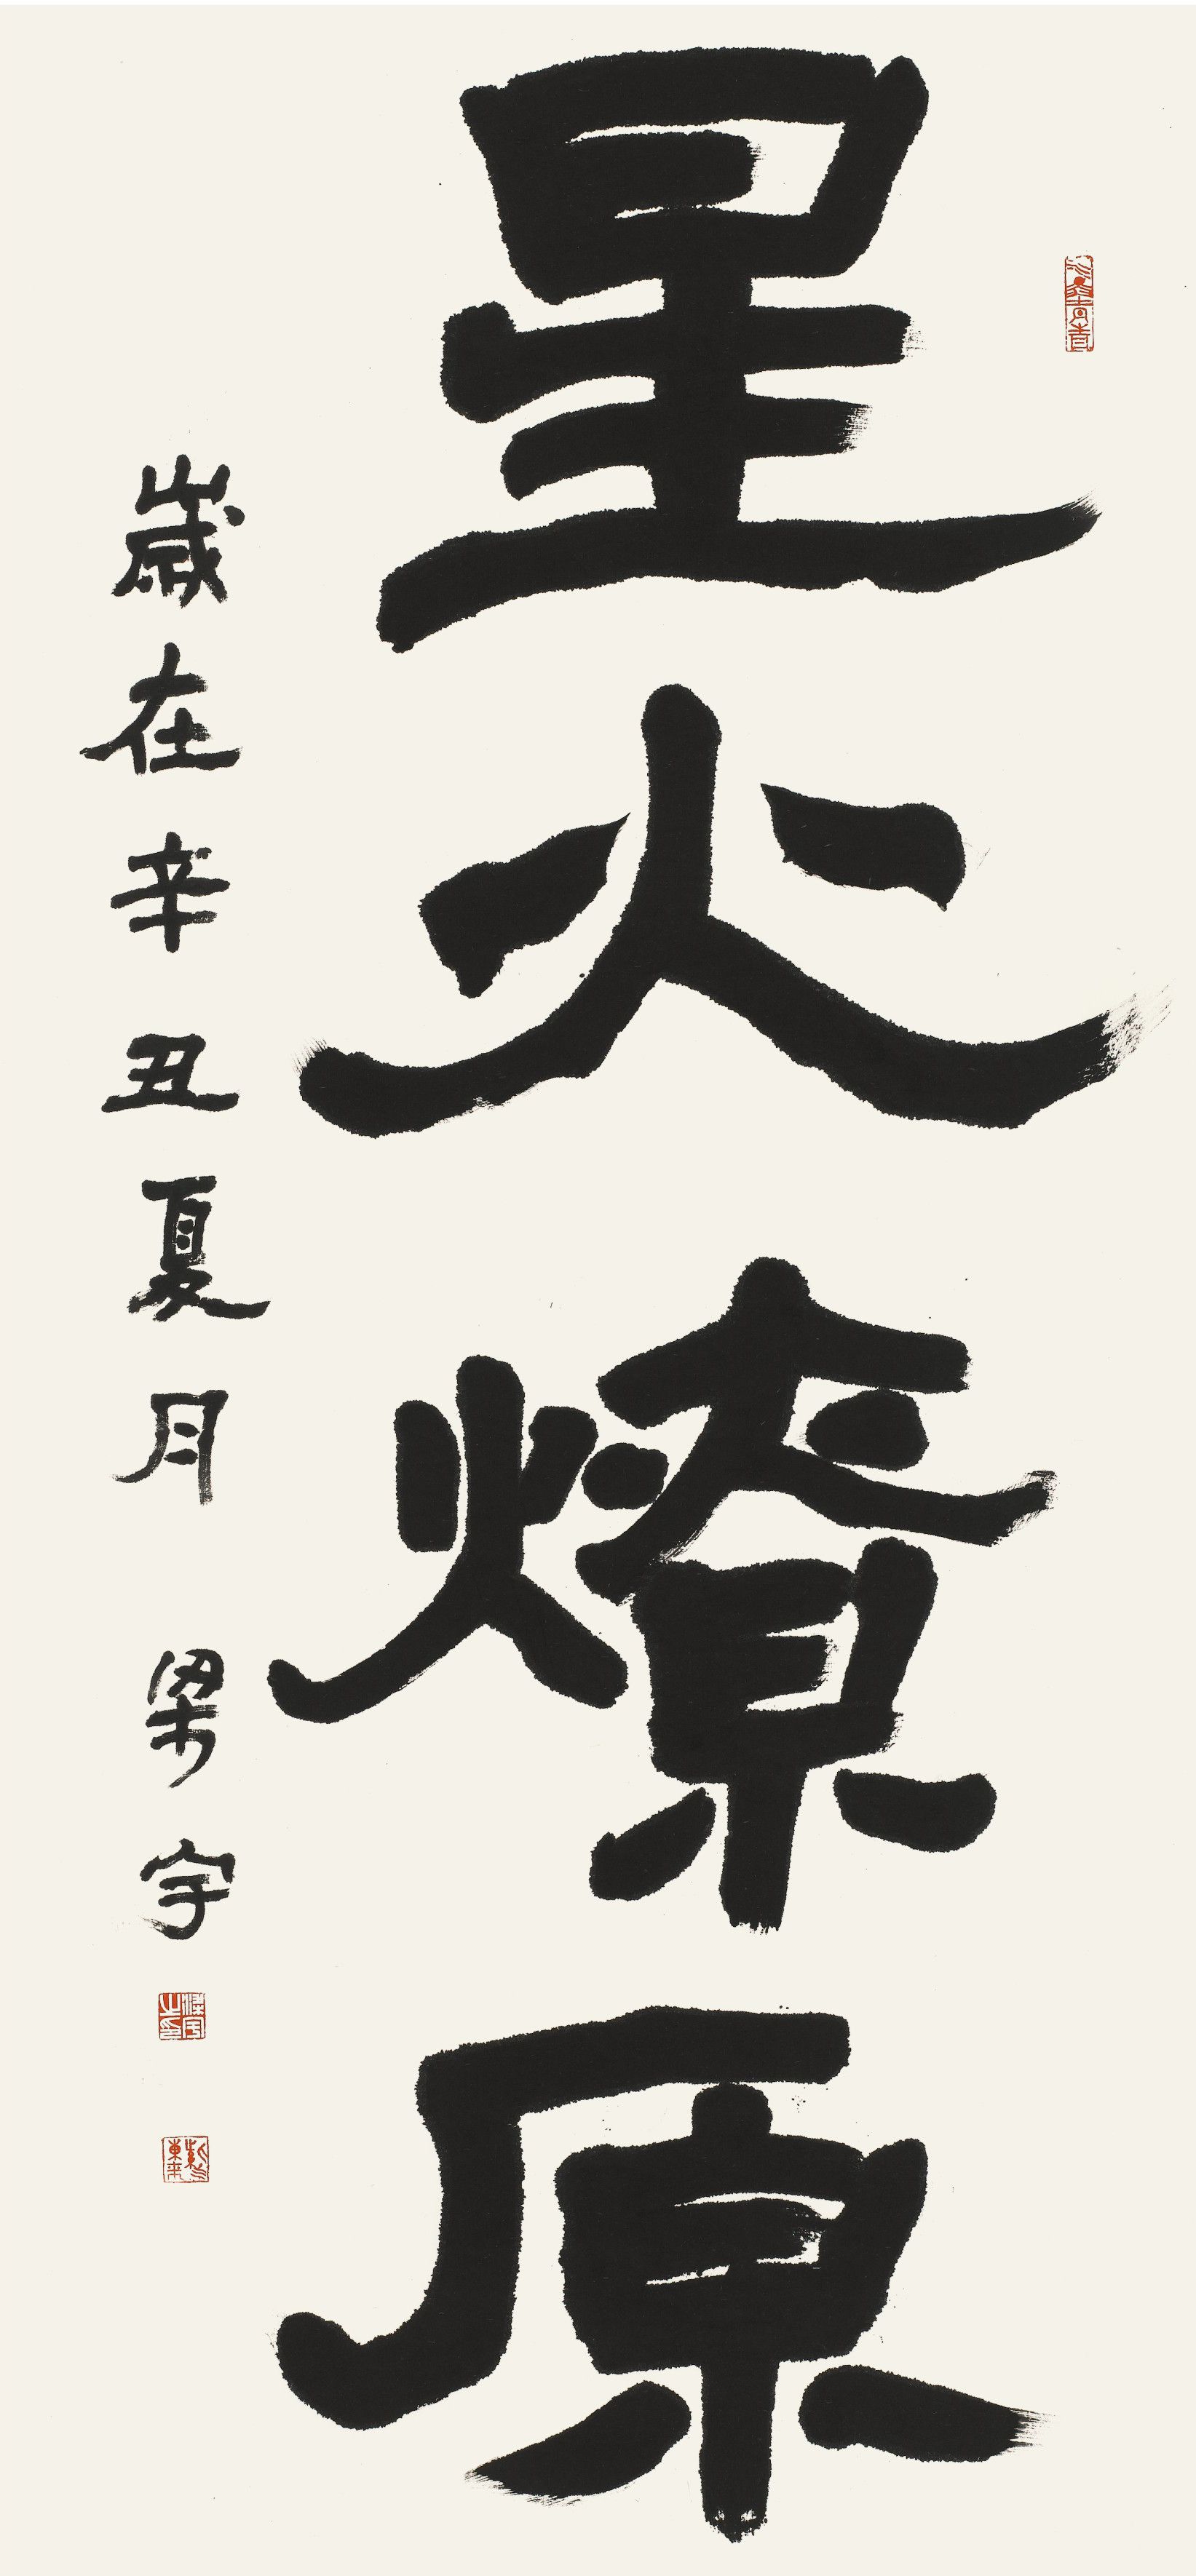 星火燎原
歲在辛丑夏月 梁宇